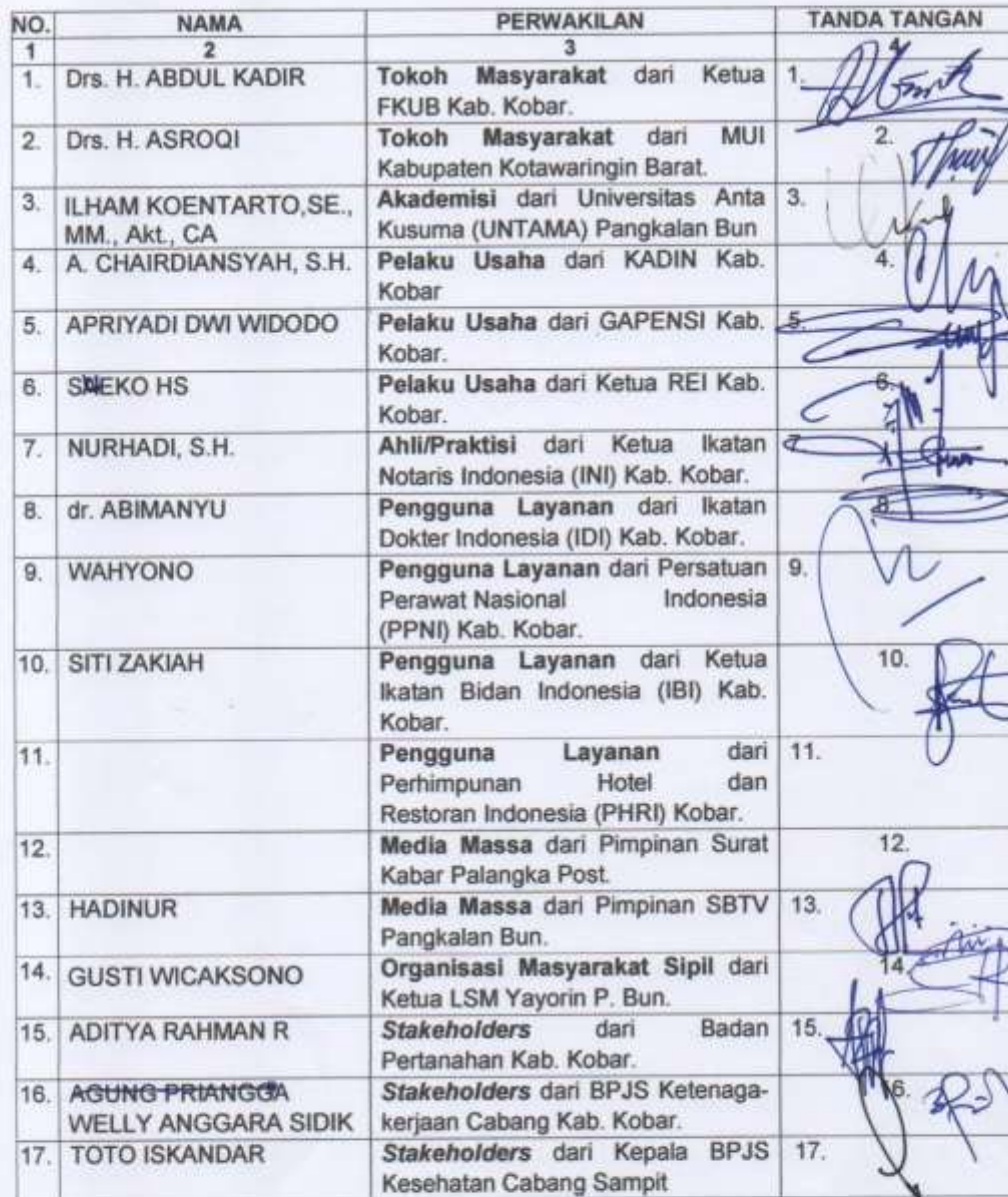 NO. NAMA PERWAKILAN TANDA TANGAN
1 2 3 4
1. Drs. H. ABDUL KADIR Tokoh Masyarakat dari Ketua 1.
FKUB Kab. Kobar.
2. Drs. H. ASROQI Tokoh Masyarakat dari MUI 2.
Kabupaten Kotawaringin Barat.
3. ILHAM KOENTARTO,SE., Akademisi dari Universitas Anta 3.
MM., Akt., CA Kusuma (UNTAMA) Pangkalan Bun
4. A. CHAIRDIANSYAH, S.H. Pelaku Usaha dari KADIN Kab. 4.
Kobar
5. APRIYADI DWI WIDODO Pelaku Usaha dari GAPENSI Kab. 5.
Kobar.
6. HS Pelaku Usaha dari Ketua REI Kab. 6.
Kobar.
7. NURHADI, S.H. Ahli/Praktisi dari Ketua Ikatan 7.
Notaris Indonesia (INI) Kab. Kobar.
8. dr. ABIMANYU Pengguna Layanan dari Ikatan 8.
Dokter Indonesia (IDI) Kab. Kobar.
9. WAHYONO Pengguna Layanan dari Persatuan 9.
Perawat Nasional Indonesia
(PPNI) Kab. Kobar.
10. SITI ZAKIAH Pengguna Layanan dari Ketua 10.
Ikatan Bidan Indonesia (IBI) Kab.
Kobar.
11. Pengguna Layanan dari 11.
Perhimpunan Hotel dan
Restoran Indonesia (PHRI) Kobar.
12. Media Massa dari Pimpinan Surat 12.
Kabar Palangka Post.
13. HADINUR Media Massa dari Pimpinan SBTV 13.
Pangkalan Bun.
14. GUSTI WICAKSONO Organisasi Masyarakat Sipil dari 14.
Ketua LSM Yayorin P. Bun.
15. ADITYA RAHMAN R Stakeholders dari Badan 15.
Pertanahan Kab. Kobar.
16. AGUNG PRIANGGA Stakeholders dari BPJS Ketenaga- 16.
WELLY ANGGARA SIDIK kerjaan Cabang Kab. Kobar.
17. TOTO ISKANDAR Stakeholders dari Kepala BPJS 17.
Kesehatan Cabang Sampit